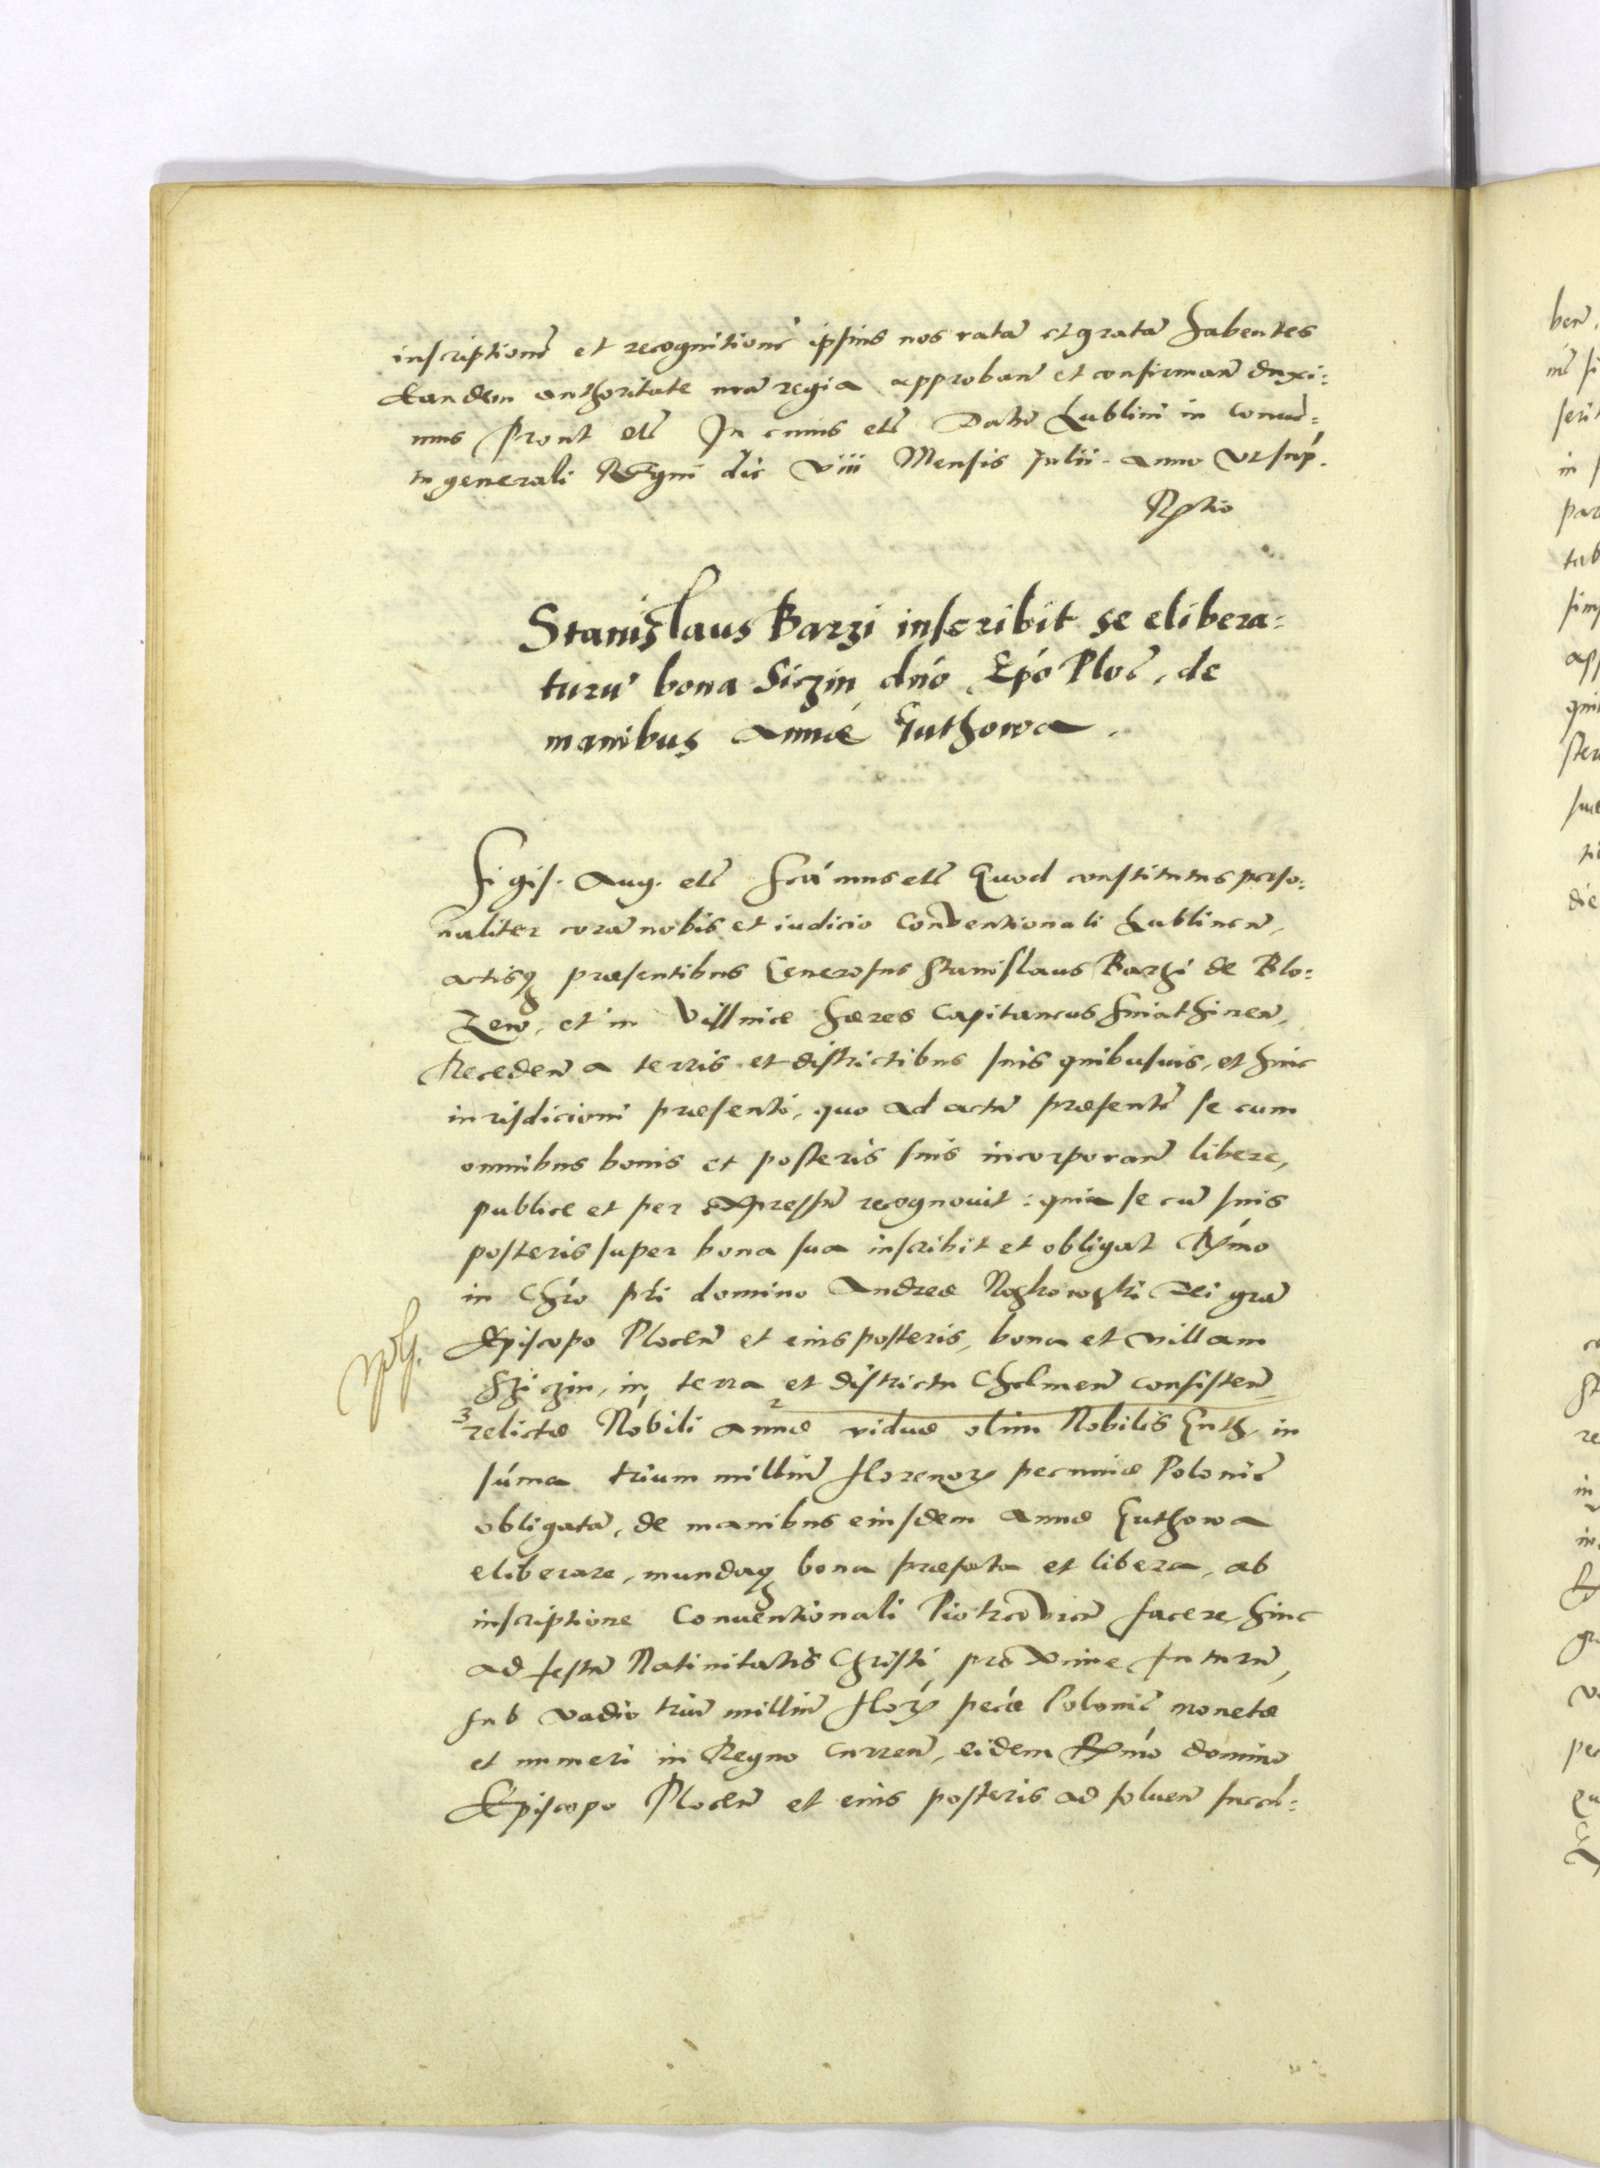 inscriptionē et recognitionē ipsius nos ratā et gratā habentes
Eandem authoritate nrā regia approbanī et confirmanī duxi:
mus Prout etc̄ In cuius etc̄ Datū Lublini in Conuē:
tu generali Regni die viii Mensis Julii. Anno Vt sup.
Rptio
Stanislaus Barzi inscribit se elibera:
turū bona Siczin dńo Epó Ploc̄. de
manibus Annæ Guthowa.
Sigis. Aug. etc̄ scá mus etc̄ Quod constitutus perso:
naliter corā nobis et iudicio Conventionali Lublinen̄,
actisq præsentibus Generosus Stanislaus Barzi de Blo:
zew, et in Villnice hæres Capitaneus Sniathinen̄,
Receden̄ a terris et districtibus suis quibusuis, et huic
iurisdicioni præsenti, quo ad actū præsentē se cum
omnibus bonis et posteris suis incorporan̄ libere,
publice et per expressū recognouit: quia se cū suis
posteris super bona sua inscribit et obligat Rmó
in Chrō pri domino Andreæ Noskowski Dei grā
Episcopo Plocen̄ et eius posteris, bona et villam
Sziczin, in terra et districtu Chelmen̄ consisten̄
3 relictæ 1 Nobili 2 Annæ viduæ olim Nobilis Guth, in
súma trium milliū florenorum pecuniæ Polonic̄
obligatā, de manibus eiusdem Annæ Guthowa
eliberare, mundaq bona præfata et libera, ab
inscriptione Conuentionali Piotrcovien̄ facere, hinc
ad festū Natiuitatis Christi proxime futurū,
sub vadio triū milliū florum pecæ Polonic̄ monetæ
et numeri in Regno Curren̄, eidem Rmó domino
Episcopo Plocen̄ et eius posteris ad soluen̄ succū: